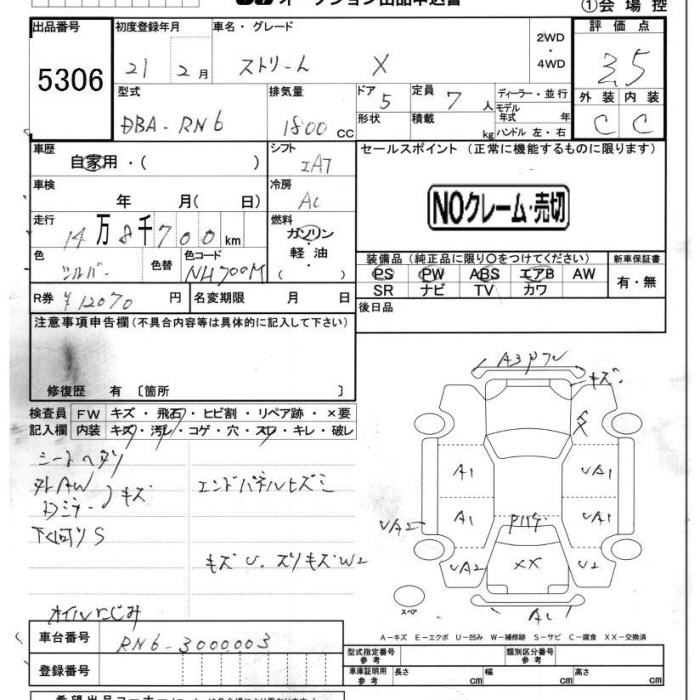 オークション出品申込書
①会場控
出品番号
5306
初度登録年月
車名・グレード
評価点
21 2月
ストリーム X
2WD
・
4WD
3.5
型式
排気量
ドア
定員
ディーラー・並行
外装 内装
DBA-RN6
1800 CC
5
7人
モデル年式 年
C C
形状
積載 kg
ハンドル 左・右
車歴
自家用・( )
シフト
IA7
セールスポイント (正常に機能するものに限ります)
車検
年 月( 日)
冷房
AC
NOクレーム・売切
走行
14万8千700km
燃料
ガソリン
・
軽油
( )
色
シルバー
色替
色コード
NH700M
装備品 (純正品に限り○をつけてください)
新車保証書
PS PW ABS エアB AW
SR ナビ TV カワ
有・無
R券 ¥12070 円
名変期限 月 日
後日品
注意事項申告欄 (不具合内容等は具体的に記入して下さい)
修復歴 有 〔箇所 〕
検査員記入欄
FW キズ・飛石・ヒビ割・リペア跡・×要
内装 キズ・汚レ・コゲ・穴・スレ・キレ・破レ
シートヘタリ
キズ
エンドパネルヒズミ
下回りS
キズU.ズリキズW2
オイルにじみ
A3
キズ
A1
UA1
A1
UA1
UA2
UA2
XX
U2
A1
スペア
A-キズ E-エクボ U-凹み W-補修跡 S-サビ C-腐食 XX-交換済
車台番号
RN6-3000003
登録番号
型式指定番号 参考
類別区分番号 参考
車庫証明用 参考
長さ cm
幅 cm
高さ cm